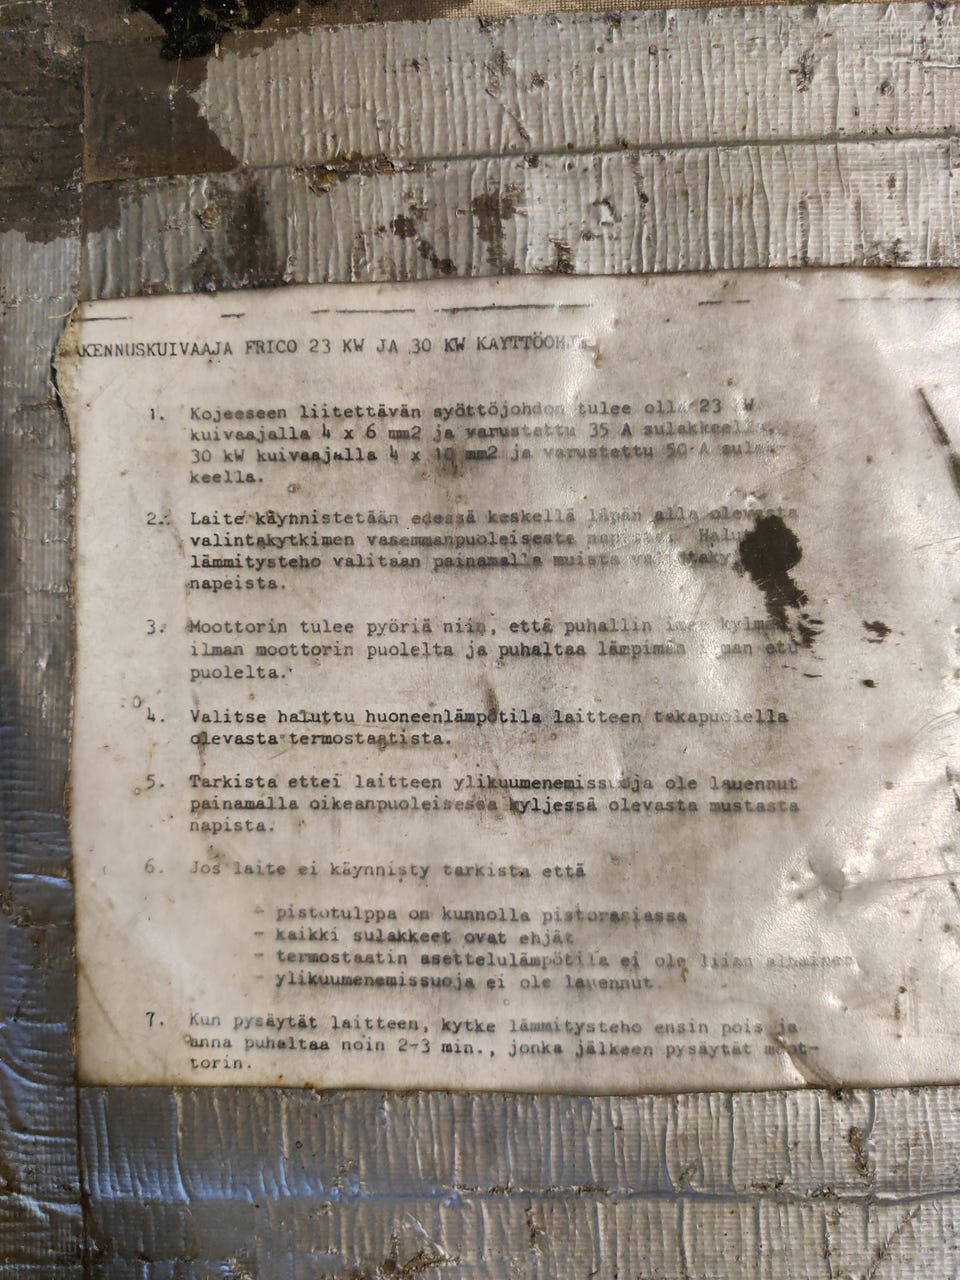 AKENNUSKUIVAAJA FRICO 23 KW JA 30 KW KAYTTÖOHJE
1. Kojeeseen liitettävän syöttöjohdon tulee olla 23 kW
kuivaajalla 4 x 6 mm2 ja varustettu 35 A sulakkeella,
30 kW kuivaajalla 4 x 10 mm2 ja varustettu 50 A sulak-
keella.
2. Laite käynnistetään edessä keskellä läpän alla olevasta
valintakytkimen vasemmanpuoleisesta napista. Halu
lämmitysteho valitaan painamalla muista
napeista.
3. Moottorin tulee pyöriä niin, että puhallin imee kylmän
ilman moottorin puolelta ja puhaltaa lämpimän ilman etu
puolelta.
4. Valitse haluttu huoneenlämpötila laitteen takapuolella
olevasta termostaatista.
5. Tarkista ettei laitteen ylikuumenemissuoja ole lauennut
painamalla oikeanpuoleisessa kyljessä olevasta mustasta
napista.
6. Jos laite ei käynnisty tarkista että
- pistotulppa on kunnolla pistorasiassa
- kaikki sulakkeet ovat ehjät
- termostaatin asettelulämpötila ei ole liian alhainen
- ylikuumenemissuoja ei ole lauennut.
7. Kun pysäytät laitteen, kytke lämmitysteho ensin pois ja
anna puhaltaa noin 2-3 min., jonka jälkeen pysäytät moot-
torin.